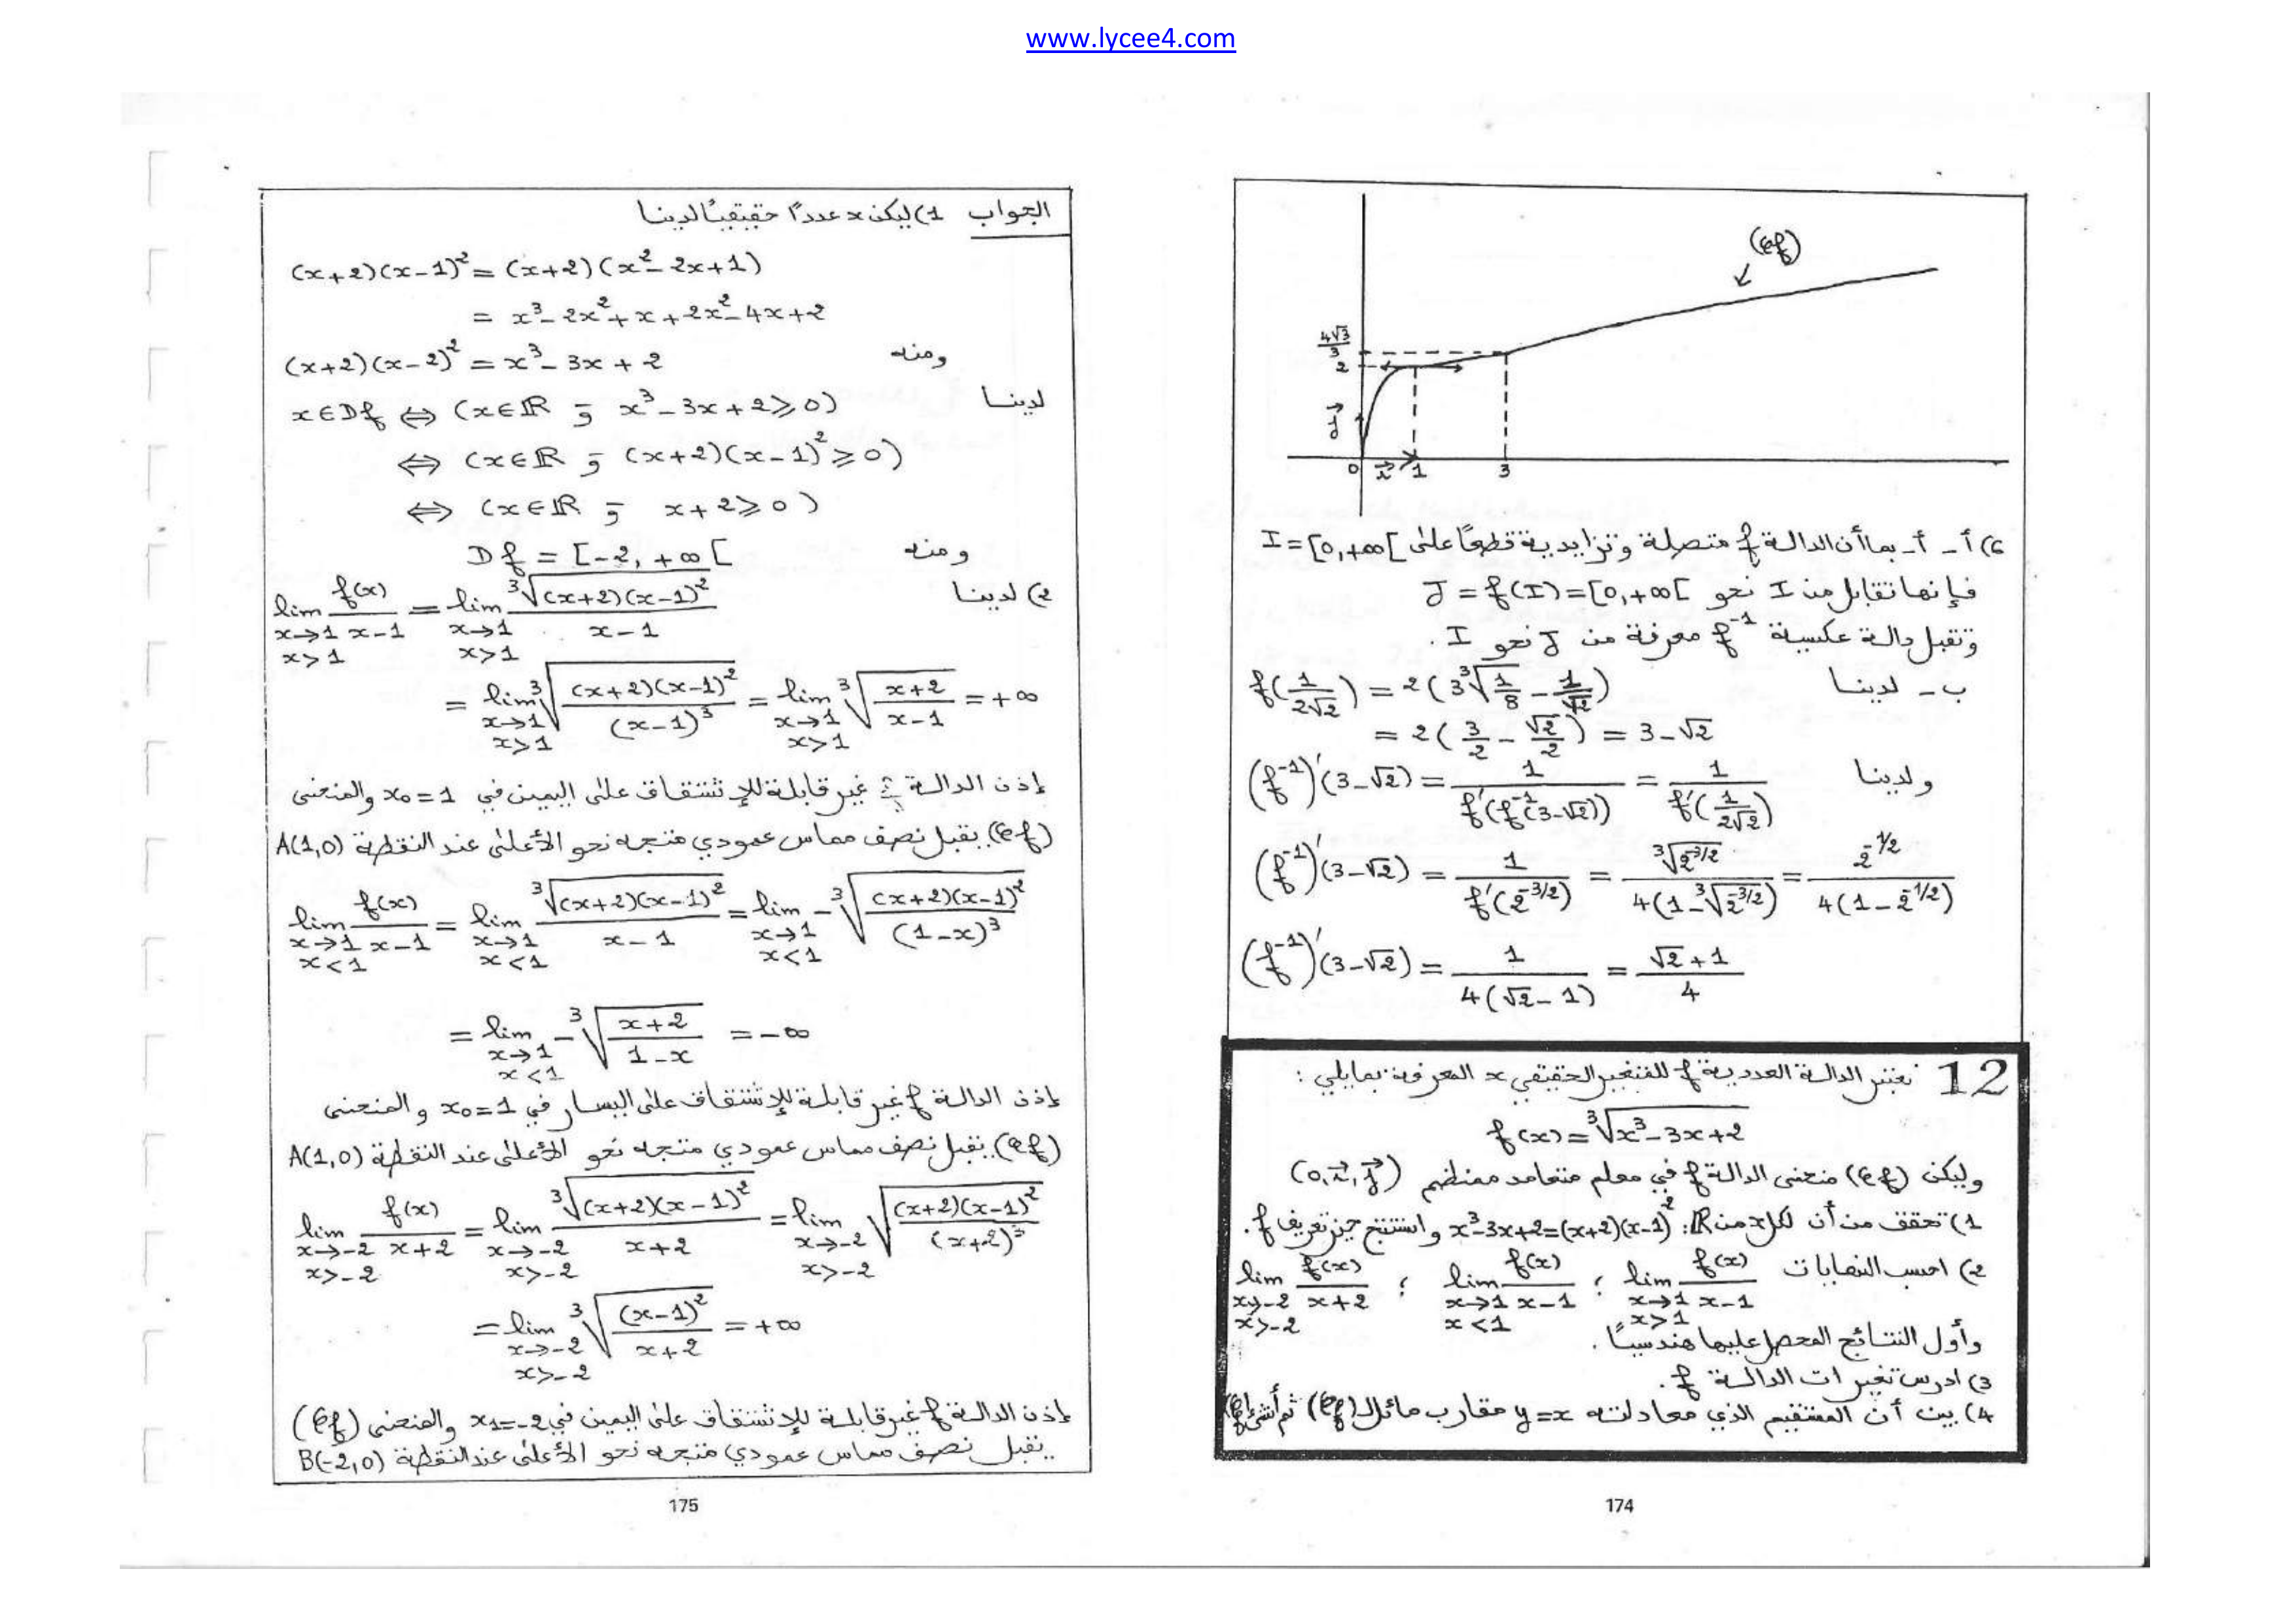 www.lycee4.com
(𝒞f)
4√3/3
2
j⃗
0 i⃗ 1 3
6) أ - أ - بما أن الدالة f متصلة وتزايدية قطعًا على I = [0,+∞[
فإنها تقابل من I نحو J = f(I) = [0,+∞[
وتقبل دالة عكسية f⁻¹ معرفة من J نحو I .
ب - لدينا f(1/(2√2)) = 2(3∛(1/8) − 1/√2)
= 2(3/2 − √2/2) = 3 − √2
ولدينا (f⁻¹)'(3−√2) = 1/(f'(f⁻¹(3−√2))) = 1/(f'(1/(2√2)))
(f⁻¹)'(3−√2) = 1/(f'(2^(-3/2))) = ∛(2^(-3/2))/(4(1−∛(2^(-3/2)))) = 2^(-1/2)/(4(1−2^(-1/2)))
(f⁻¹)'(3−√2) = 1/(4(√2−1)) = (√2+1)/4
12 نعتبر الدالة العددية f للمتغير الحقيقي x المعرفة بمايلي :
f(x) = ∛(x³−3x+2)
وليكن (𝒞f) منحنى الدالة f في معلم متعامد ممنظم (0,i⃗,j⃗)
1) تحقق من أن لكل x من ℝ : x³−3x+2=(x+2)(x−1)² واستنتج حيز تعريف f.
2) احسب النهايات lim(x→1, x>1) f(x)/(x−1) ; lim(x→1, x<1) f(x)/(x−1) ; lim(x→−2, x>−2) f(x)/(x+2)
وأول النتائج المحصل عليها هندسيًا .
3) ادرس تغيرات الدالة f .
4) بين أن المستقيم الذي معادلته y=x مقارب مائل لـ (𝒞f) ثم أنشئ (𝒞f)
174
الجواب 1) ليكن x عددًا حقيقيًا لدينا
(x+2)(x−1)² = (x+2)(x²−2x+1)
= x³−2x²+x+2x²−4x+2
ومنه (x+2)(x−2)² = x³−3x+2
لدينا x∈Df ⇔ (x∈ℝ و x³−3x+2⩾0)
⇔ (x∈ℝ و (x+2)(x−1)²⩾0)
⇔ (x∈ℝ و x+2⩾0)
ومنه Df = [−2, +∞[
2) لدينا lim(x→1, x>1) f(x)/(x−1) = lim(x→1, x>1) ∛((x+2)(x−1)²)/(x−1)
= lim(x→1, x>1) ∛((x+2)(x−1)²/(x−1)³) = lim(x→1, x>1) ∛((x+2)/(x−1)) = +∞
إذن الدالة f غير قابلة للإشتقاق على اليمين في x₀=1 والمنحنى
(𝒞f) يقبل نصف مماس عمودي متجه نحو الأعلى عند النقطة A(1,0)
lim(x→1, x<1) f(x)/(x−1) = lim(x→1, x<1) ∛((x+2)(x−1)²)/(x−1) = lim(x→1, x<1) −∛((x+2)(x−1)²/(1−x)³)
= lim(x→1, x<1) −∛((x+2)/(1−x)) = −∞
إذن الدالة f غير قابلة للإشتقاق على اليسار في x₀=1 والمنحنى
(𝒞f) يقبل نصف مماس عمودي متجه نحو الأعلى عند النقطة A(1,0)
lim(x→−2, x>−2) f(x)/(x+2) = lim(x→−2, x>−2) ∛((x+2)(x−1)²)/(x+2) = lim(x→−2, x>−2) √((x+2)(x−1)²/(x+2)³)
= lim(x→−2, x>−2) ∛((x−1)²/(x+2)) = +∞
إذن الدالة f غير قابلة للإشتقاق على اليمين في x₁=−2 والمنحنى (𝒞f)
يقبل نصف مماس عمودي متجه نحو الأعلى عند النقطة B(−2,0)
175